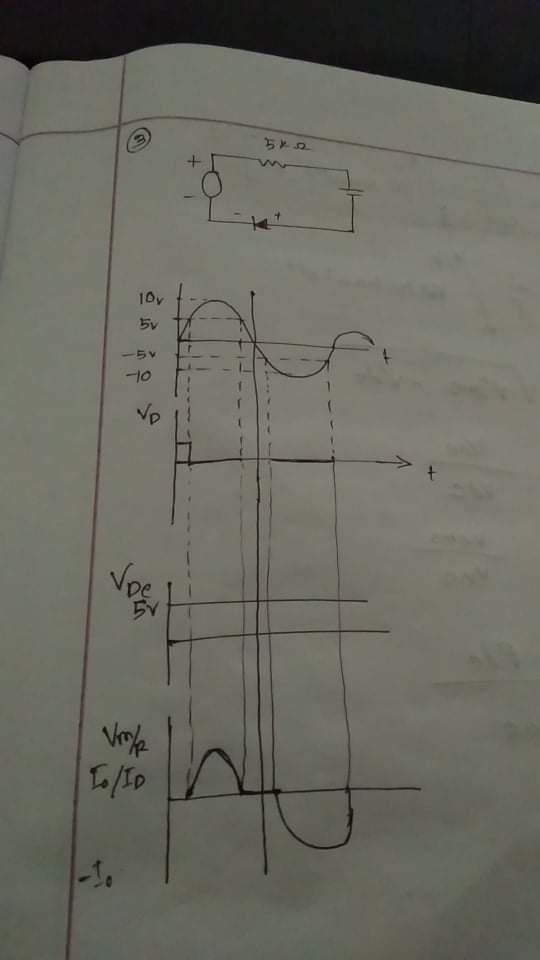 3
5K Ω
+
-
- +
10v
5v
-5v
-10
t
VD
t
VDC
5v
Vm/R
Io/ID
-Io